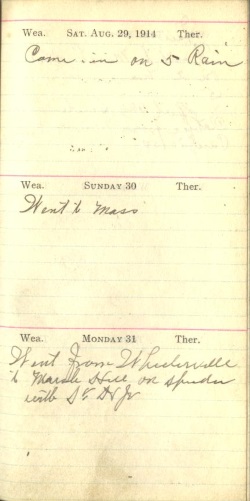 Wea. SAT. AUG. 29, 1914 Ther.
Come in on 5 Rain
Wea. SUNDAY 30 Ther.
Went to Mass
Wea. MONDAY 31 Ther.
Went From Wheelerville
to Marsh Hill on speeder
with